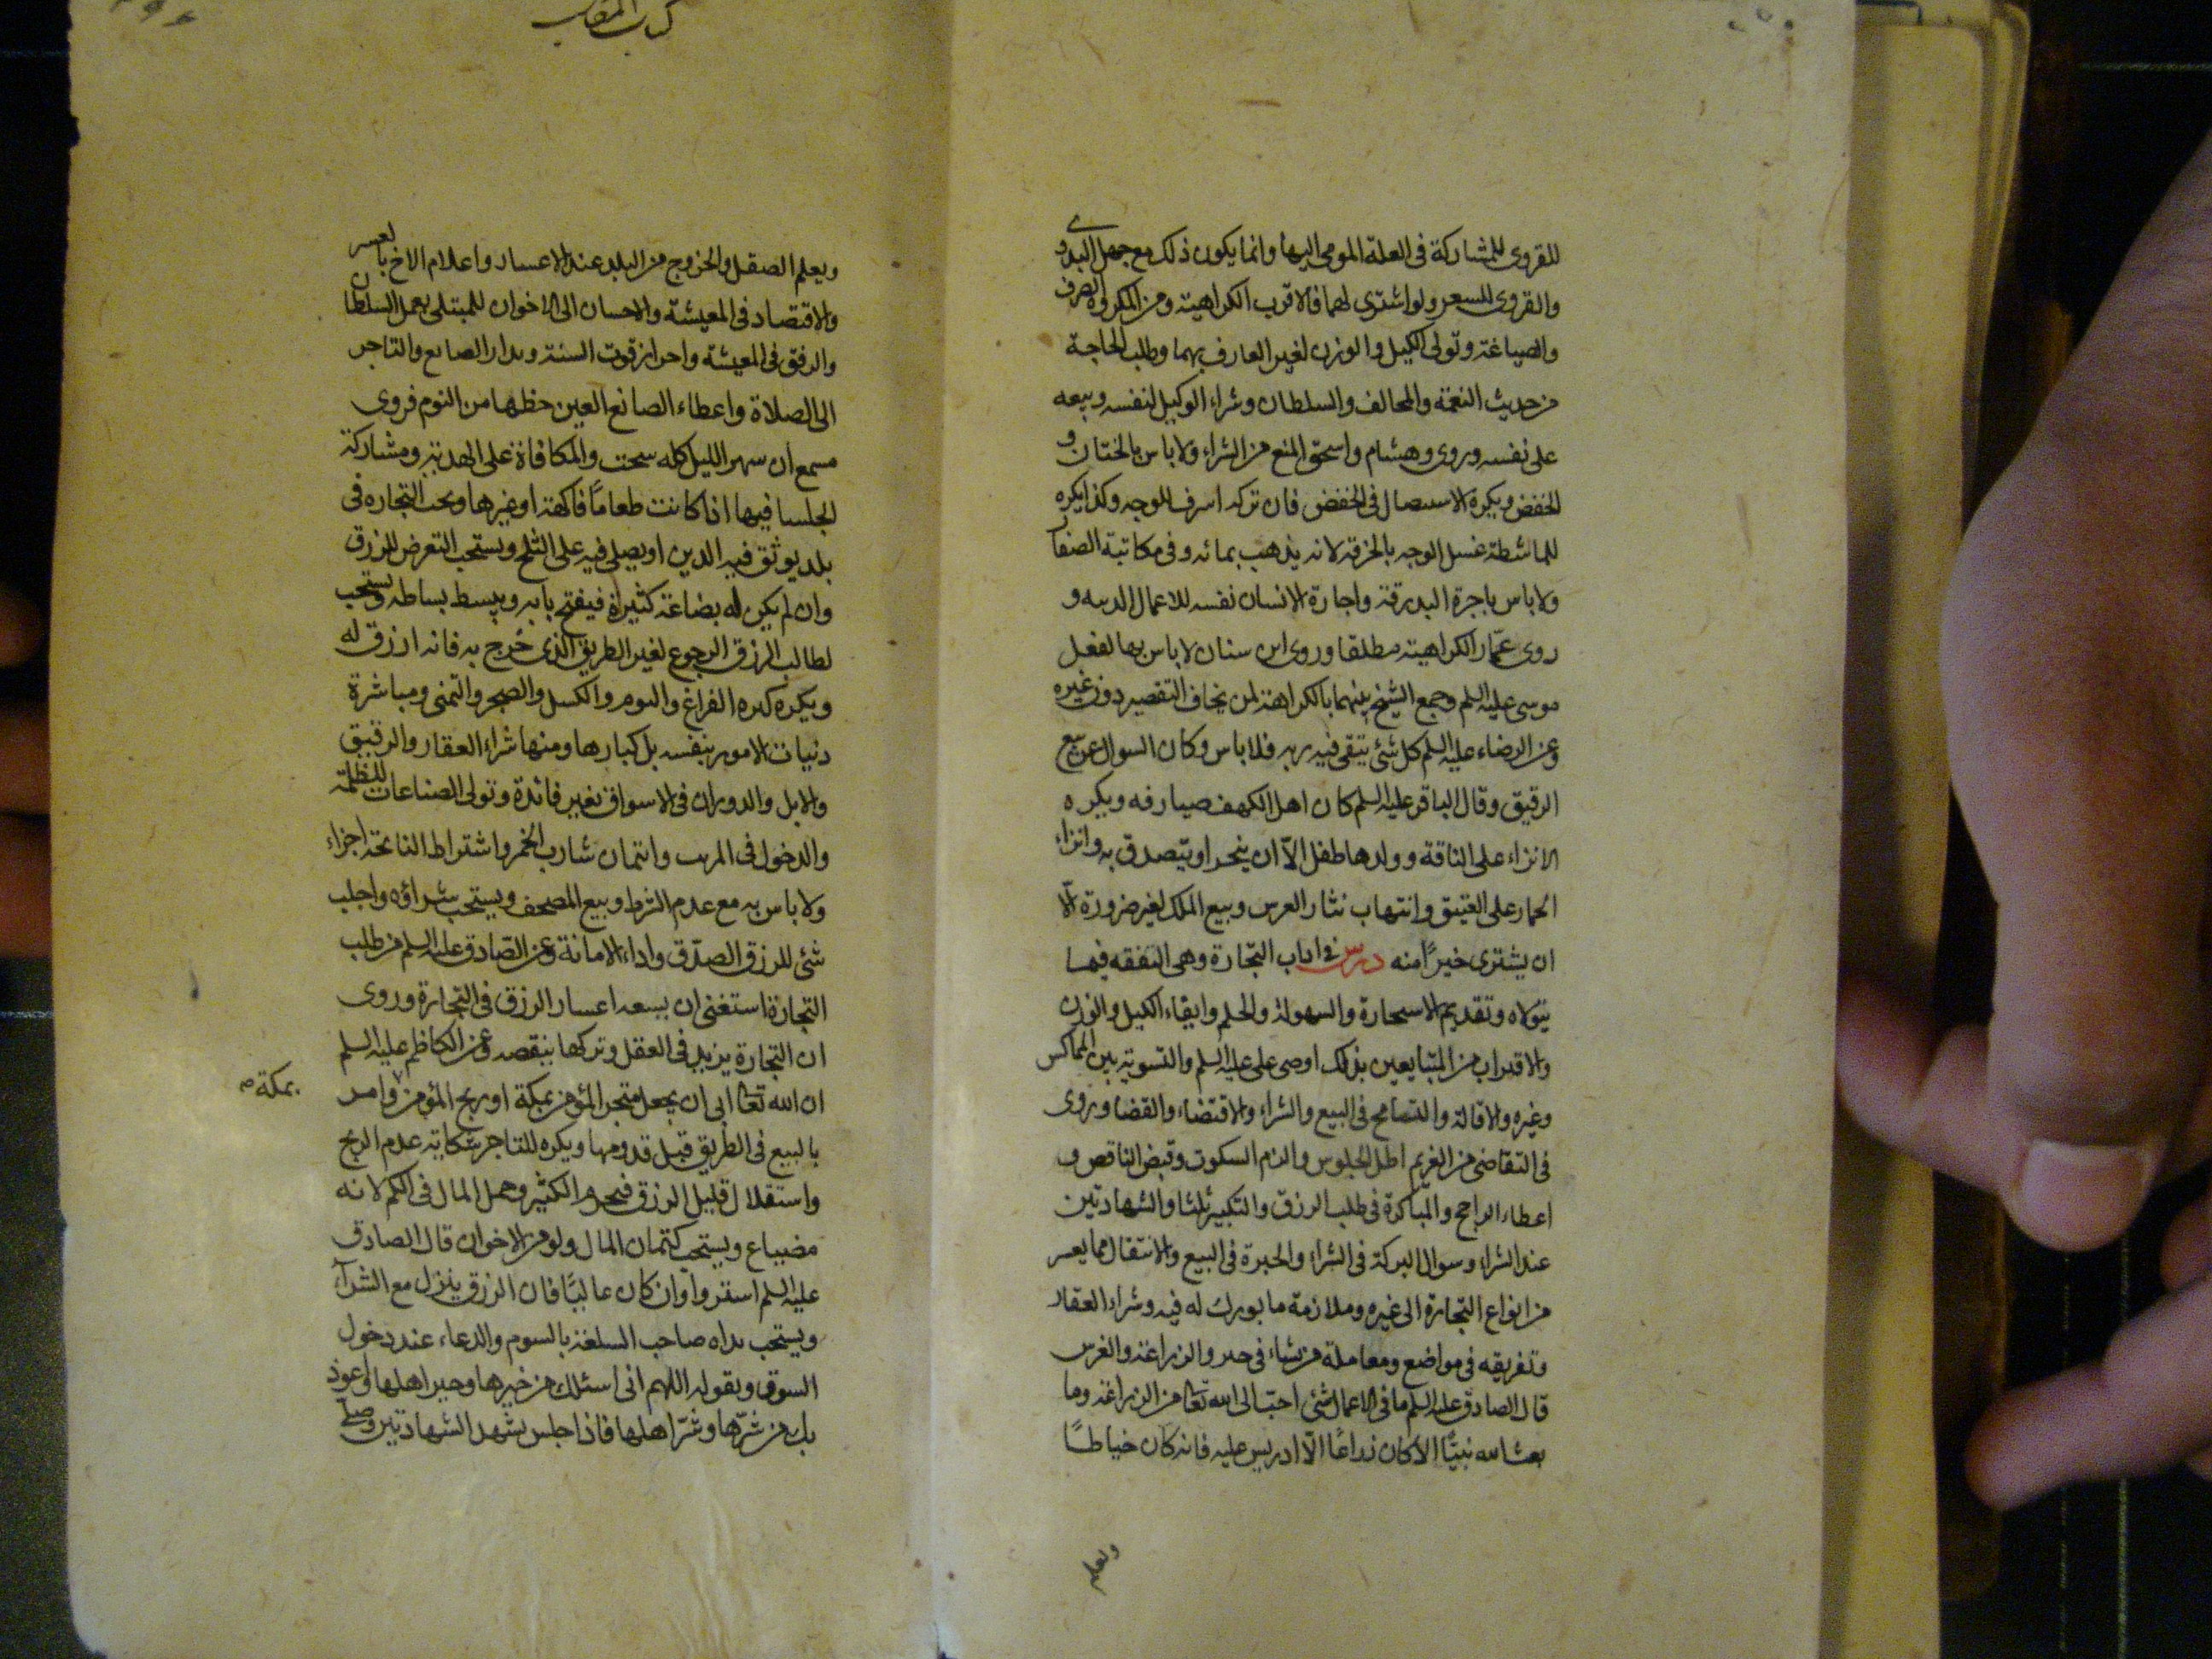 للقروى للمشاركة فى العلة المومى اليها وانما يكون ذلك مع جهل البدوى
والقروى للسعر ولو اشترى لهما فالاقرب الكراهية ومن المكروه الصرف
والصياغة وتولى الكيل والوزن لغير العارف بهما وطلب الحاجة
من حديث النعمة والمخالف والسلطان وشراء الوكيل لنفسه وبيعه
على نفسه وروى وهشام واسحق المنع من الشراء ولا باس بالختان و
الخفض ويكره الاستصال فى الخفض فان تركه اسرف للوجه وكذا يكره
للماشطة غسل الوجه بالخرقة لانه يذهب بمائه وفى مكاتبة الصفار
ولا باس باجرة البدرقة واجارة الانسان نفسه للاعمال الدنيه و
روى عمّار الكراهية مطلقا وروى ابن سنان لا باس بها لفعل
موسى عليه السلم وجمع الشيخ بينهما بالكراهة لمن يخاف التقصير دون غيره
وعن الرضاء عليه السلم كل شئ يتقى فيه ربه فلا باس وكان السوال عن بيع
الرقيق وقال الباقر عليه السلم كان اهل الكهف صيارفه ويكره
الانزاء على الناقة وولدها طفل الّا ان ينحر او يتصدق به وانزاء
الحمار على العتيق وانتهاب نثار العرس وبيع الملك لغير ضرورة الّا
ان يشترى خيرًا منه درس فى اداب التجارة وهى التفقه فيما
يتولاه وتقديم الاستخارة والسهولة والحلم وايفاء الكيل والوزن
والاقتراب من المتبايعين بذلك اوصى على عليه السلم والتسوية بين المماكس
وغيره والاقالة والتسامح فى البيع والشراء والاقتضاء والقضا وروى
فى التقاضى من الغريم اطل الجلوس والزم السكوت وقبض الناقص و
اعطاء الراجح والمباكرة فى طلب الرزق والتكبير ثلثا والشهادتين
عند الشراء وسوال البركة فى الشراء والخيرة فى البيع والانتقال مما يعسر
من انواع التجارة الى غيره وملازمة ما بورك له فيه وشراء العقار
وتفريقه فى مواضع ومعاملة من نشاء فى خير والزراعة والغرس
قال الصادق عليه السلم ما فى الاعمال شئ احبّ الى الله تعا من الزراعة وما
بعث الله نبيًّا الا كان زراعًا الّا ادريس عليه فانه كان خياطًا
وتعلم
كتاب المكاسب
وبعلم الصقل والخروج من البلد عند الاعسار واعلام الاخ بالعسر
والاقتصاد فى المعيشة والاحسان الى الاخوان للمبتلى بعمل السلطان
والرفق فى المعيشة واحراز قوت السنة وبدار الصانع والتاجر
الى الصلاة واعطاء الصانع العين حظها من النوم فروى
مسمع ان سهر الليل كله سحت والمكافاة على الهدية ومشاركة
الجلسا فيها اذا كانت طعامًا فاكهة او غيرها وتجب التجاره فى
بلد يوثق فيه الدين او يصلى فيه على الثلج ويستحب التعرض للرزق
وان لم يكن له بضاعة كثيرة فيفتح بابه ويبسط بساطه ويستحب
لطالب الرزق الرجوع لغير الطريق الذى خرج به فانه ارزق له
ويكره كثره الفراغ والنوم والكسل والضجر والتمنى ومباشرة
دنيات الامور بنفسه بل كبارها ومنها شراء العقار والرقيق
والابل والدوران فى الاسواق بغير فائدة وتولى الصناعات للظلمة
والدخول فى المريب وائتمان شارب الخمر واشتراط النائحة اجراء
ولا باس به مع عدم الشرط وبيع المصحف ويستحب شراؤه واجلب
شئ للرزق الصدق واداء الامانة وعن الصّادق عليه السلم من طلب
التجارة استغنى ان تسعة اعشار الرزق فى التجارة وروى
ان التجارة يزيد فى العقل وتركها ينقصه وعن الكاظم عليه السلم
ان الله تعا ابى ان يجعل متجر المؤمن بمكة او ربح المؤمن وامر
بمكة صح
بالبيع فى الطريق قبل قدومها ويكره للتاجر شكاية عدم الربح
واستقلال قليل الرزق فيحرم الكثير وحمل المال فى الكم لانه
مضياع ويستحب كتمان المال ولو من الاخوان قال الصادق
عليه السلم استروا وان كان عاليًا فان الرزق ينزل مع الشرآء
ويستحب بداه صاحب السلعة بالسوم والدعاء عند دخول
السوق وبقوله اللهم انى اسئلك من خيرها وخير اهلها واعوذ
بك من شرّها وشرّ اهلها فاذا جلس يشهد الشهادتين وصلّى